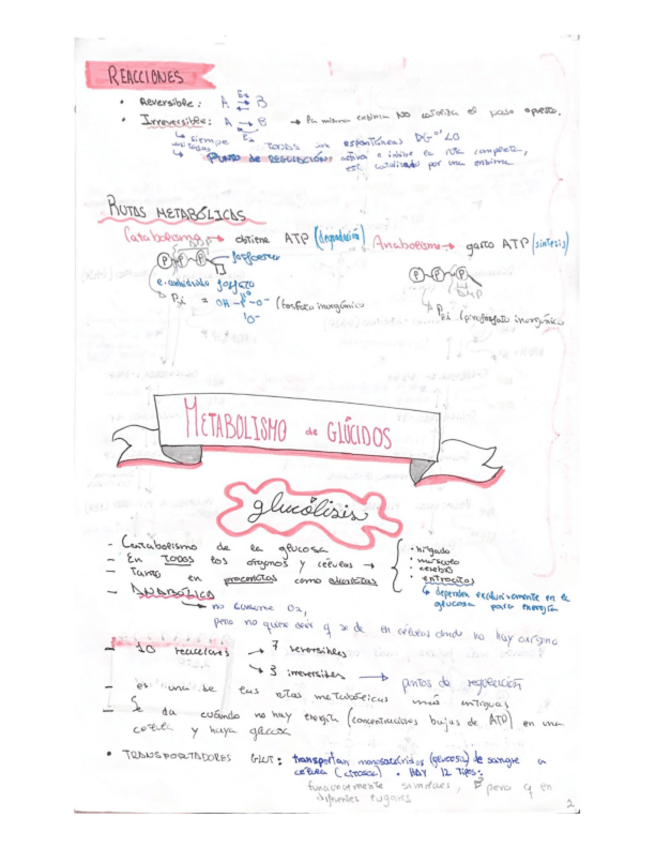 REACCIONES
• Reversible: A ⇄ B
• Irreversible: A → B → la misma enzima NO cataliza el paso opuesto.
↳ siempre TODAS son espontáneas ΔG°' <0
↳ PUNTO DE REGULACIÓN: activa o inhibe la ruta completa,
está catalizado por una enzima
RUTAS METABÓLICAS
Catabolismo → obtiene ATP (degradación) Anabolismo → gasto ATP (síntesis)
ADP
P P P
P P P
fosfato
Pi = OH-P-O- (fosfato inorgánico
O-
(pirofosfato inorgánico
METABOLISMO de GLÚCIDOS
glucólisis
- Catabolismo de la glucosa
- En TODOS los órganos y células →
• hígado
• músculo
• cerebro
• eritrocitos
↳ dependen exclusivamente en la glucosa para energía
- Tanto en procariotas como eucariotas
- ANAERÓBICA
→ no consume O2,
pero no quiere decir q se de en células donde no hay oxígeno
- 10 reacciones → 7 reversibles
→ 3 irreversibles → puntos de regulación
- es una de las rutas metabólicas más antiguas
- Se da cuándo no hay energía (concentraciones bajas de ATP) en una
célula y haya glucosa
• TRANSPORTADORES GLUT: transportan monosacáridos (glucosa) de sangre a
célula (citosol) • HAY 12 tipos:
funcionalmente similares, pero q en
diferentes lugares
2